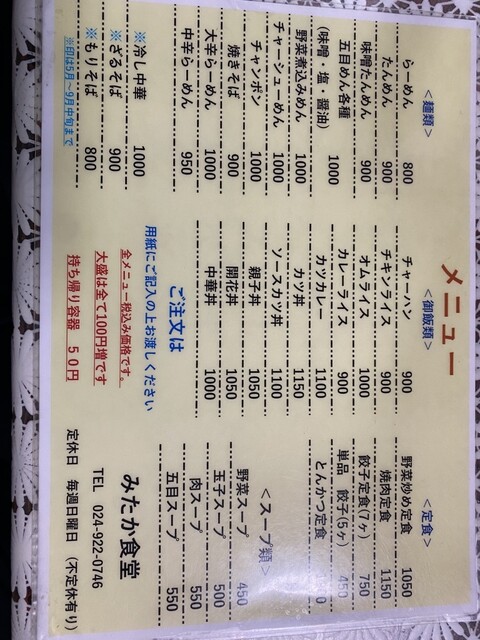 メニュー
＜麺類＞
らーめん 800
たんめん 900
味噌たんめん 900
五目めん各種
(味噌・塩・醤油) 1000
野菜煮込みめん 1000
チャーシューめん 1000
チャンポン 1000
焼きそば 900
大辛らーめん 1000
中辛らーめん 950
※冷し中華 1000
※ざるそば 900
※もりそば 800
※印は5月～9月中旬まで
＜御飯類＞
チャーハン 900
チキンライス 900
オムライス 1000
カレーライス 900
カツカレー 1100
カツ丼 1150
ソースカツ丼 1100
親子丼 1050
開花丼 1050
中華丼 1000
ご注文は
用紙にご記入の上お渡しください
全メニュー税込み価格です。
大盛は全て100円増です
持ち帰り容器 50円
＜定食＞
野菜炒め定食 1050
焼肉定食 1150
餃子定食(7ヶ) 750
単品 餃子(5ヶ) 450
とんかつ定食
＜スープ類＞
野菜スープ 450
玉子スープ 500
肉スープ 550
五目スープ 550
みたか食堂
TEL 024-922-0746
定休日 毎週日曜日 (不定休有り)